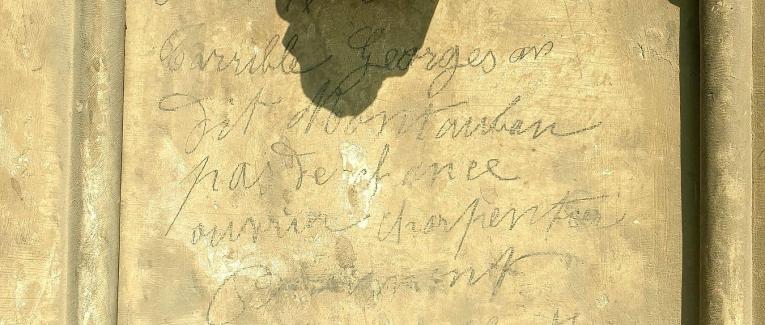 Carrible Georges
dit Montauban
pas de chance
ouvrier charpentier